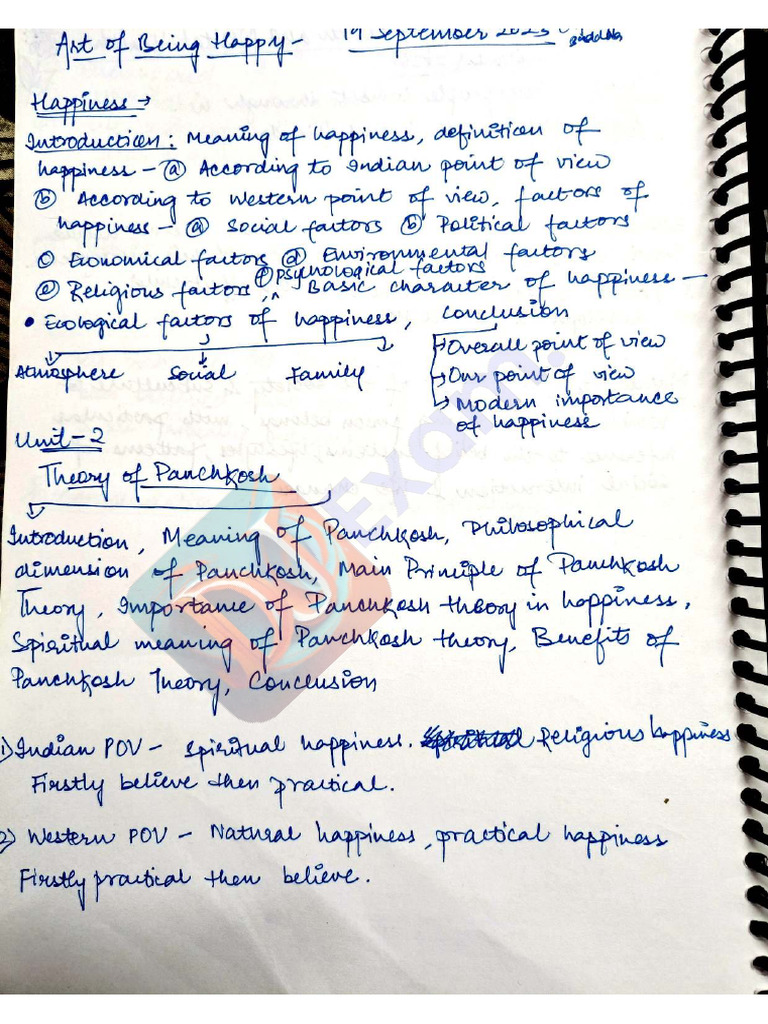 Art of Being Happy - 19 September 2023
Happiness →
Introduction: Meaning of happiness, definition of
happiness - ⓐ According to Indian point of view
ⓑ According to Western point of view, factors of
happiness - ⓐ Social factors ⓑ Political factors
ⓒ Economical factors ⓓ Environmental factors
ⓔ Religious factors, ⓕ Psychological factors Basic character of happiness -
• Ecological factors of happiness, Conclusion
Atmosphere Social Family
→ Overall point of view
→ Our point of view
→ Modern importance
of happiness
Unit-2
Theory of Panchkosh
Introduction, Meaning of Panchkosh, Philosophical
dimension of Panchkosh, Main Principle of Panchkosh
Theory, Importance of Panchkosh theory in happiness,
Spiritual meaning of Panchkosh theory, Benefits of
Panchkosh Theory, Conclusion
1) Indian POV - Spiritual happiness. Religious happiness
Firstly believe then practical.
2) Western POV - Natural happiness, practical happiness
Firstly practical then believe.
Exam.